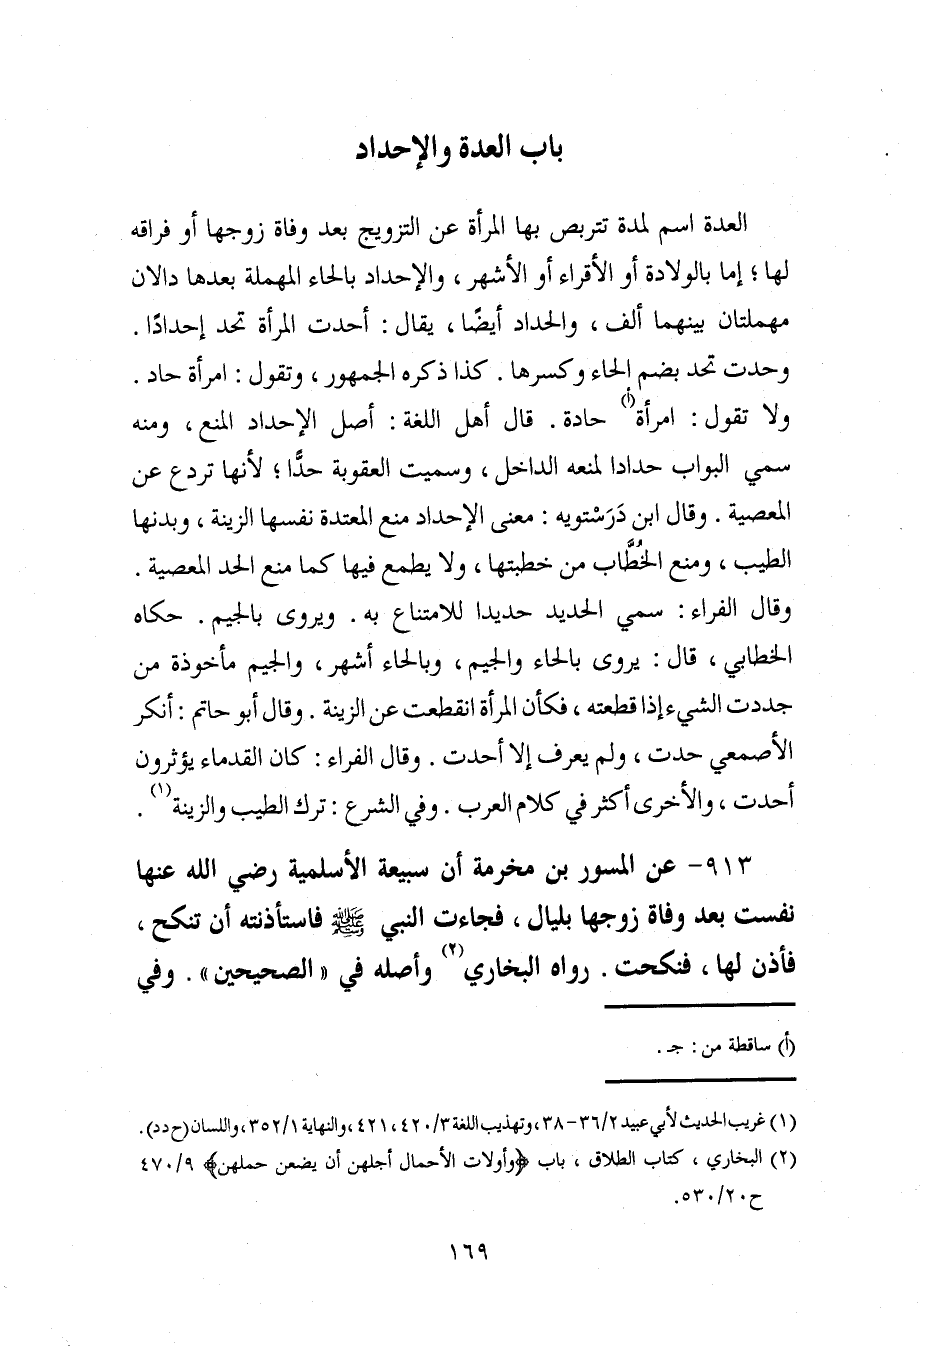 باب العدة والإحداد
العدة اسم لمدة تتربص بها المرأة عن التزويج بعد وفاة زوجها أو فراقه
لها ؛ إما بالولادة أو الأقراء أو الأشهر ، والإحداد بالحاء المهملة بعدها دالان
مهملتان بينهما ألف ، والحداد أيضًا ، يقال : أحدت المرأة تحد إحدادًا .
وحدت تحد بضم الحاء وكسرها . كذا ذكره الجمهور ، وتقول : امرأة حاد .
ولا تقول : امرأة(أ) حادة . قال أهل اللغة : أصل الإحداد المنع ، ومنه
سمي البواب حدادا لمنعه الداخل ، وسميت العقوبة حدًّا ؛ لأنها تردع عن
المعصية . وقال ابن دَرَسْتويه : معنى الإحداد منع المعتدة نفسها الزينة ، وبدنها
الطيب ، ومنع الخُطَّاب من خطبتها ، ولا يطمع فيها كما منع الحد المعصية .
وقال الفراء : سمي الحديد حديدا للامتناع به . ويروى بالجيم . حكاه
الخطابي ، قال : يروى بالحاء والجيم ، وبالحاء أشهر ، والجيم مأخوذة من
جددت الشيء إذا قطعته ، فكأن المرأة انقطعت عن الزينة . وقال أبو حاتم : أنكر
الأصمعي حدت ، ولم يعرف إلا أحدت . وقال الفراء : كان القدماء يؤثرون
أحدت ، والأخرى أكثر في كلام العرب . وفي الشرع : ترك الطيب والزينة(١) .
٩١٣- عن المسور بن مخرمة أن سبيعة الأسلمية رضي الله عنها
نفست بعد وفاة زوجها بليال ، فجاءت النبي ﷺ فاستأذنته أن تنكح ،
فأذن لها ، فنكحت . رواه البخاري(٢) وأصله في «الصحيحين» . وفي
(أ) ساقطة من : جـ .
(١) غريب الحديث لأبي عبيد ٣٦/٢-٣٨، وتهذيب اللغة ٤٢٠/٣، ٤٢١، والنهاية ٣٥٢/١، واللسان (ح دد).
(٢) البخاري ، كتاب الطلاق ، باب ﴿وأولات الأحمال أجلهن أن يضعن حملهن﴾ ٤٧٠/٩
ح٥٣٠/٢٠.
١٦٩